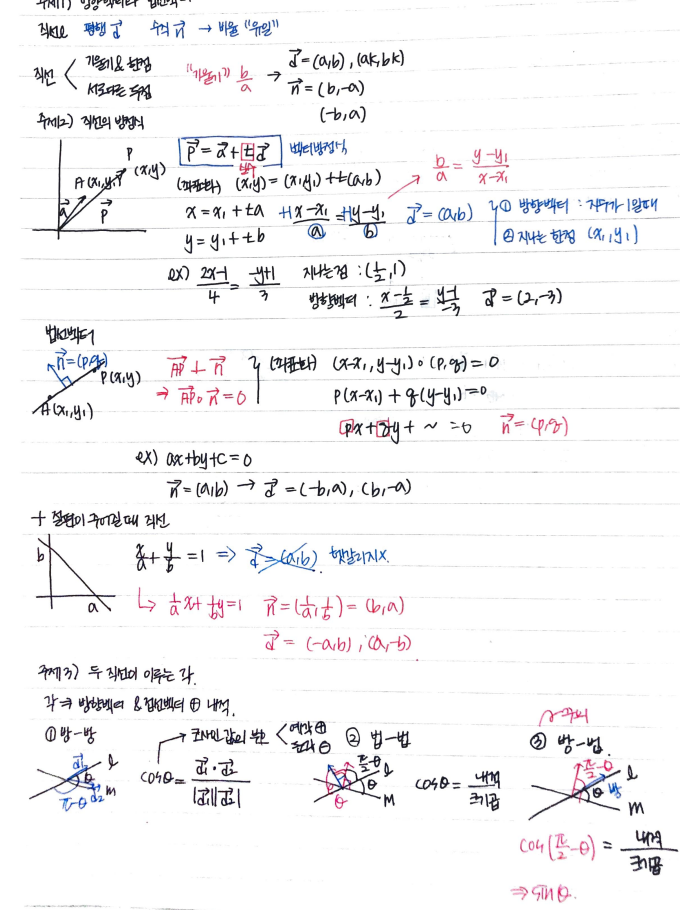 주제1) 방향벡터와 법선벡터
직선ℓ 평행 d⃗ 수직 n⃗ → 비율 "유일"
직선 < 기울기 & 한점
서로다른 두점
"기울기" b/a → d⃗=(a,b), (ak,bk)
n⃗=(b,-a)
(-b,a)
주제2) 직선의 방정식
P (x,y)
A(x₁,y₁)
a⃗ p⃗
p⃗ = a⃗ + t d⃗ 벡터방정식
(좌표화) (x,y)=(x₁,y₁)+t(a,b)
b/a = (y-y₁)/(x-x₁)
x=x₁+ta (x-x₁)/a = (y-y₁)/b d⃗=(a,b)
y=y₁+tb
① 방향벡터 : 지수가 1일때
② 지나는 한점 (x₁,y₁)
ex) (2x-1)/4 = (-y+1)/3 지나는점 : (1/2,1)
방향벡터 : (x-1/2)/2 = (y-1)/-3 d⃗=(2,-3)
법선벡터
n⃗=(p,q)
P(x,y)
A(x₁,y₁)
AP⃗ ⊥ n⃗
⇒ AP⃗∘n⃗=0
(좌표화) (x-x₁,y-y₁)∘(p,q)=0
p(x-x₁)+q(y-y₁)=0
px+qy+ ~ =0 n⃗=(p,q)
ex) ax+by+c=0
n⃗=(a,b) → d⃗=(-b,a), (b,-a)
+ 절편이 주어질때 직선
b
a
x/a + y/b =1 ⇒ d⃗=(a,b) 헷갈리지x.
↳ 1/a x + 1/b y=1 n⃗=(1/a,1/b)=(b,a)
d⃗=(-a,b), (a,-b)
주제3) 두 직선이 이루는 각.
각 ⇒ 방향벡터 & 법선벡터 ⊕ 내적.
① 방-방
d₁⃗ ℓ
θ
π-θ d₂⃗ m
→ 코사인 값의 부호 < 예각 ⊕
둔각 ⊖
cosθ = d₁⃗·d₂⃗ / |d₁⃗||d₂⃗|
② 법-법
π/2-θ ℓ
θ θ m
cosθ = 내적/크기곱
③ 방-법.
π/2-θ ℓ
θ 방
m
cos(π/2-θ) = 내적/크기곱
⇒ sinθ.